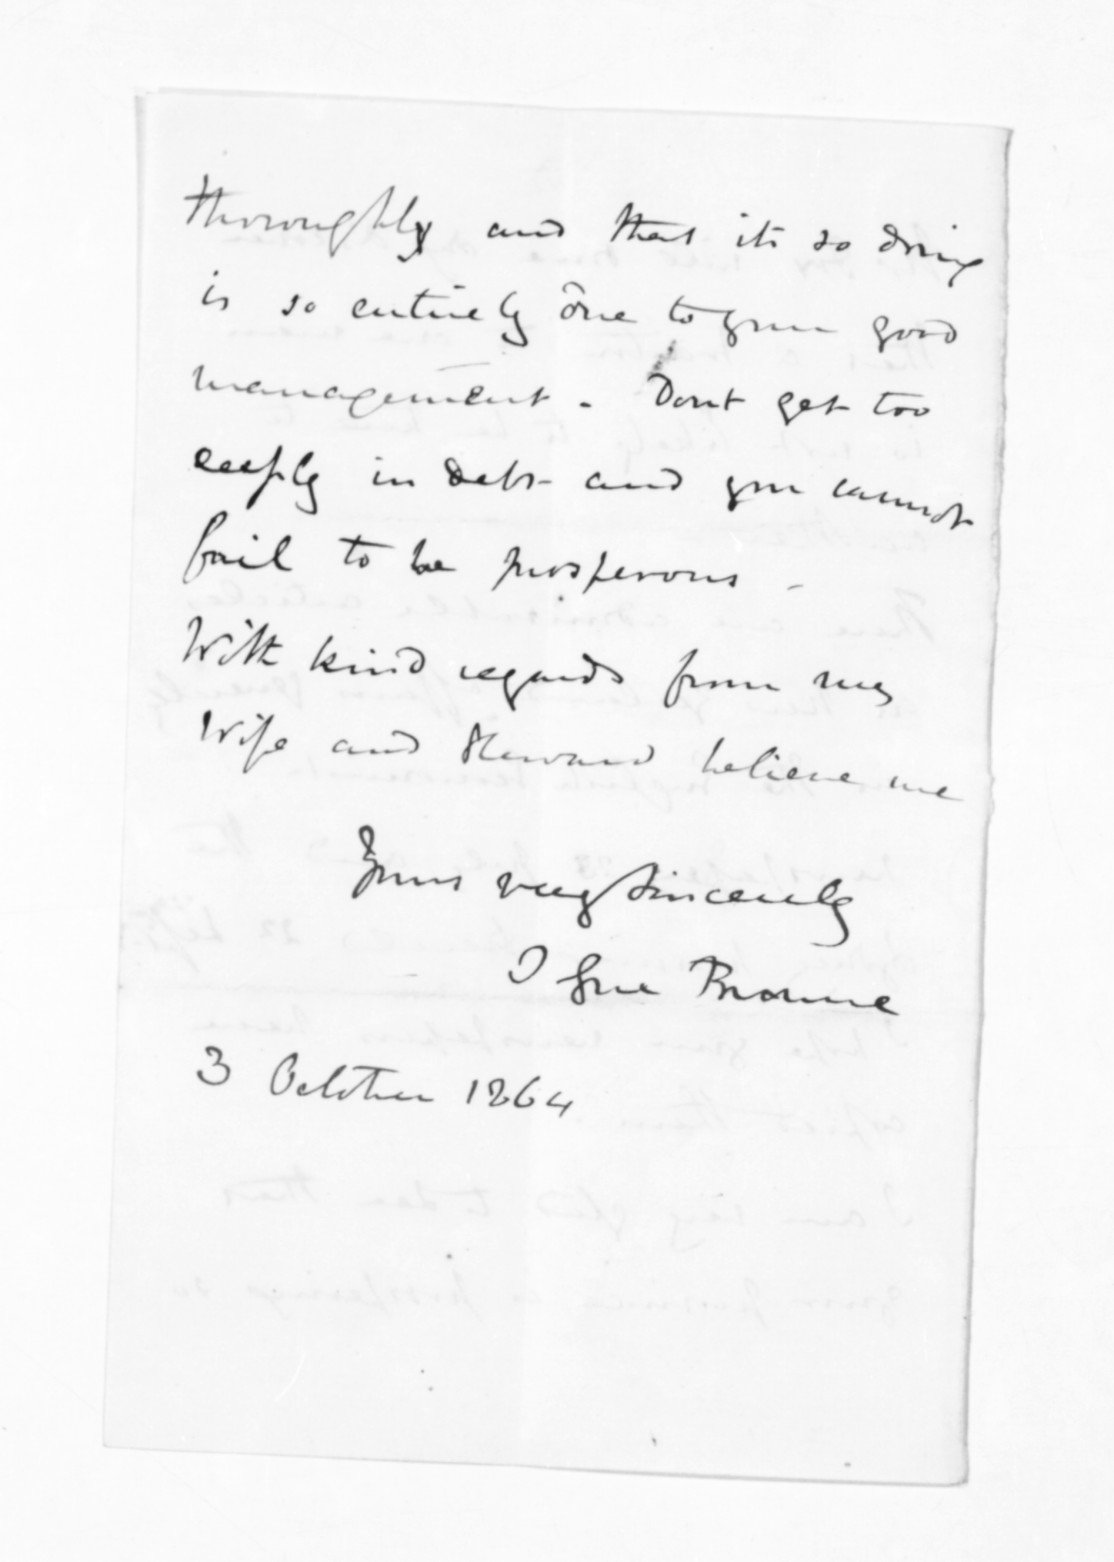 thoroughly and that its so doing
is so entirely due to your good
management - Dont get too
deeply in debt - and you cannot
fail to be prosperous -
With kind regards from my
Wife and Steward believe me
Yours very Sincerely
T Gore Browne
3 October 1864